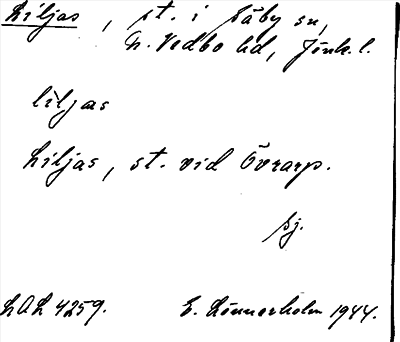 Liljas, st. i Säby sn,
N. Vedbo hd, Jönk. l.
liljas
Liljas, st. vid Övrarp.
Sj.
LAL 4259. E. Lönnerholm 1944.